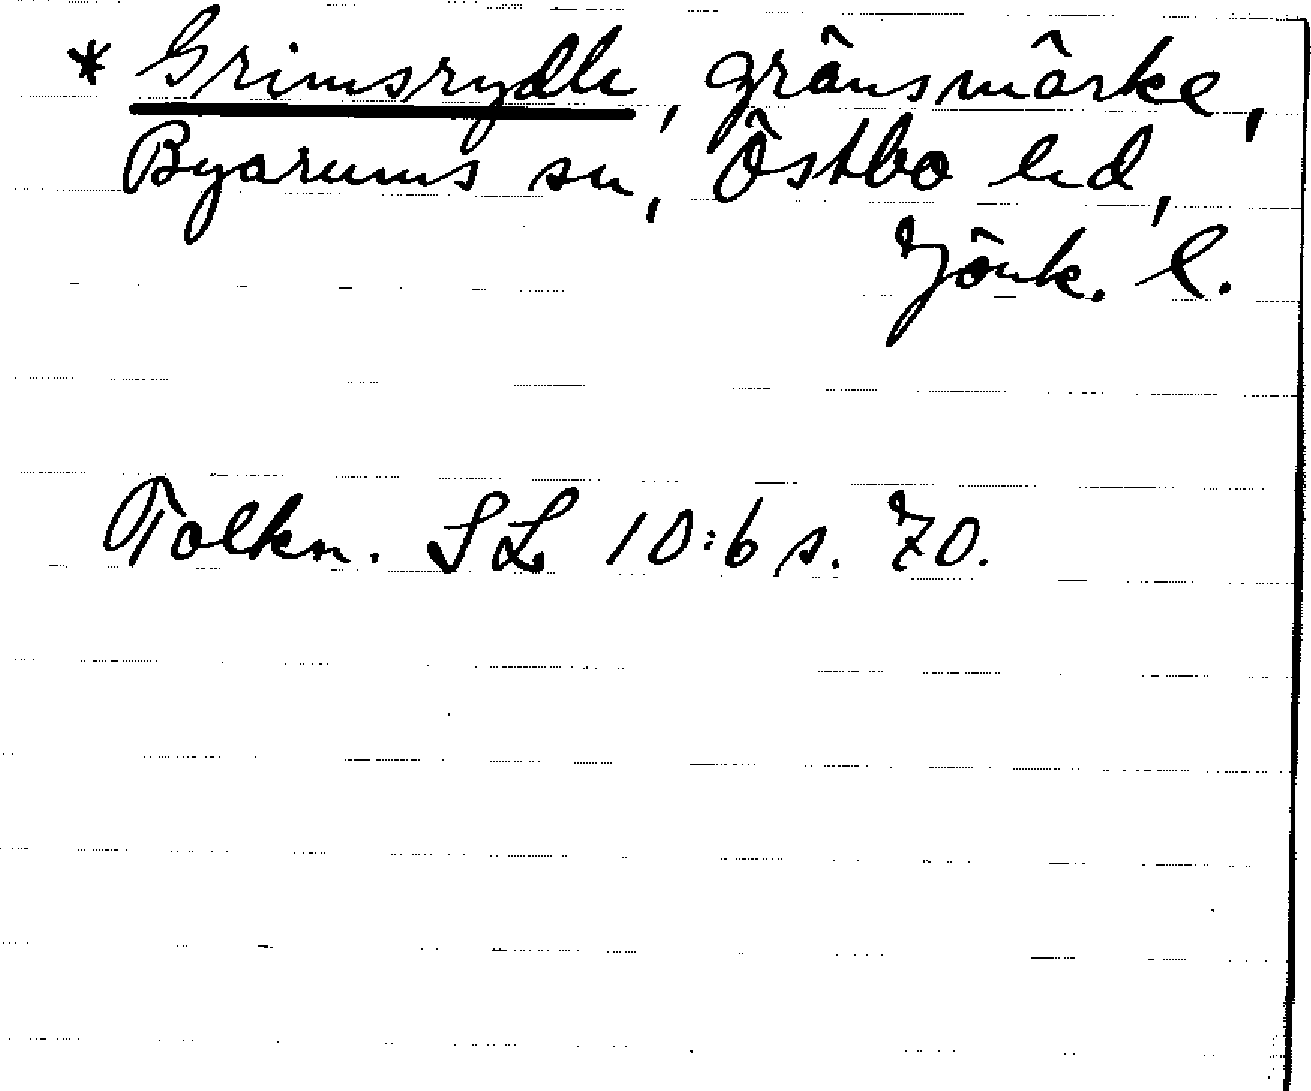 * Grimsrydh, gränsmärke,
Byarums sn, Östbo hd,
Jönk. l.
Tolkn. SL 10:6 s. 70.